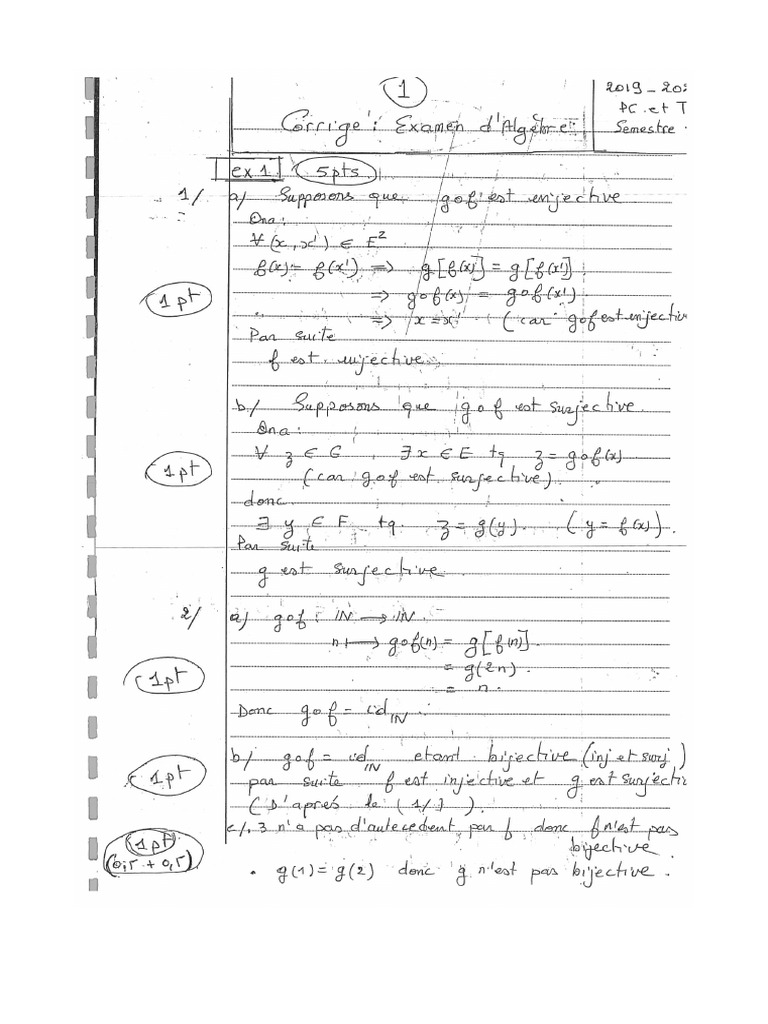 1
2019 - 202
PC et T
Semestre
Corrigé : Examen d'Algèbre
ex 1 5 pts
1/ a/ Supposons que gof est injective
Ona :
∀ (x, x') ∈ E²
f(x) = f(x') => g[f(x)] = g[f(x')]
1 pt => gof(x) = gof(x')
=> x = x' (car gof est injective
Par suite
f est injective.
b/ Supposons que gof est surjective.
Ona :
∀ z ∈ G , ∃ x ∈ E tq z = gof(x)
1 pt (car gof est surjective)
donc
∃ y ∈ F tq z = g(y). (y = f(x)).
Par suite
g est surjective
2/ a/ gof : IN → IN
n ↦ gof(n) = g[f(n)].
= g(2n)
1 pt = n.
Donc gof = id_IN
b/ gof = id_IN etant bijective (inj et surj)
1 pt par suite f est injective et g est surjecti
(D'après le (1/)).
c/. 3 n'a pas d'autecedent par f donc f n'est pas
1 pt bijective.
(0,5 + 0,5) . g(1) = g(2) donc g n'est pas bijective.